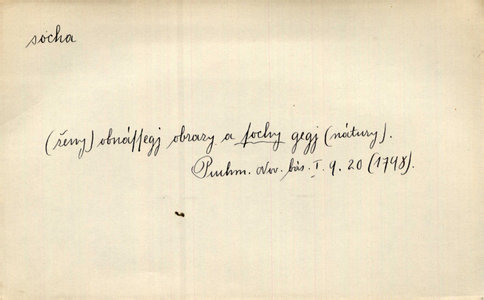 socha
(ženy) obnássegj obrazy a sochy gegj (nátury).
Puchm. Nov. bás. I. 9. 20 (1798).